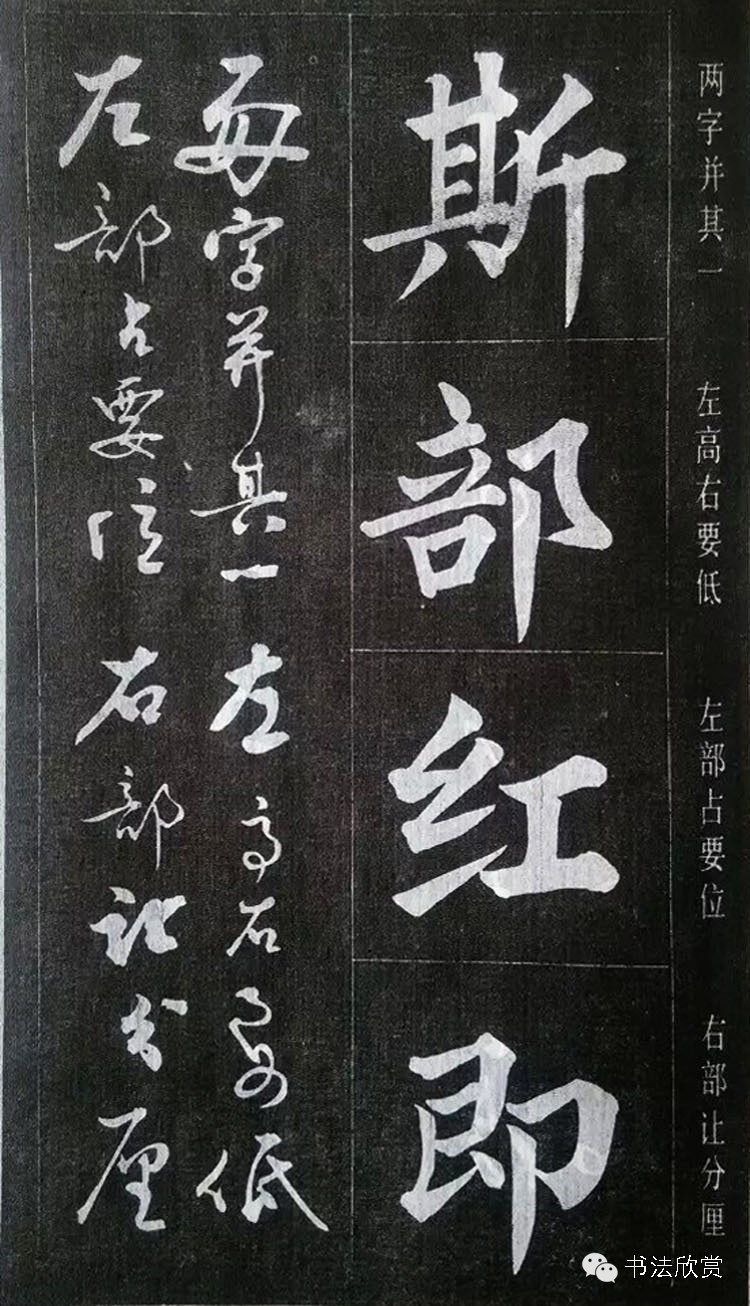 两字并其一 左高右要低 左部占要位 右部让分厘
斯部红即
每字并其一左高右要低
左部占要位右部让分厘
书法欣赏